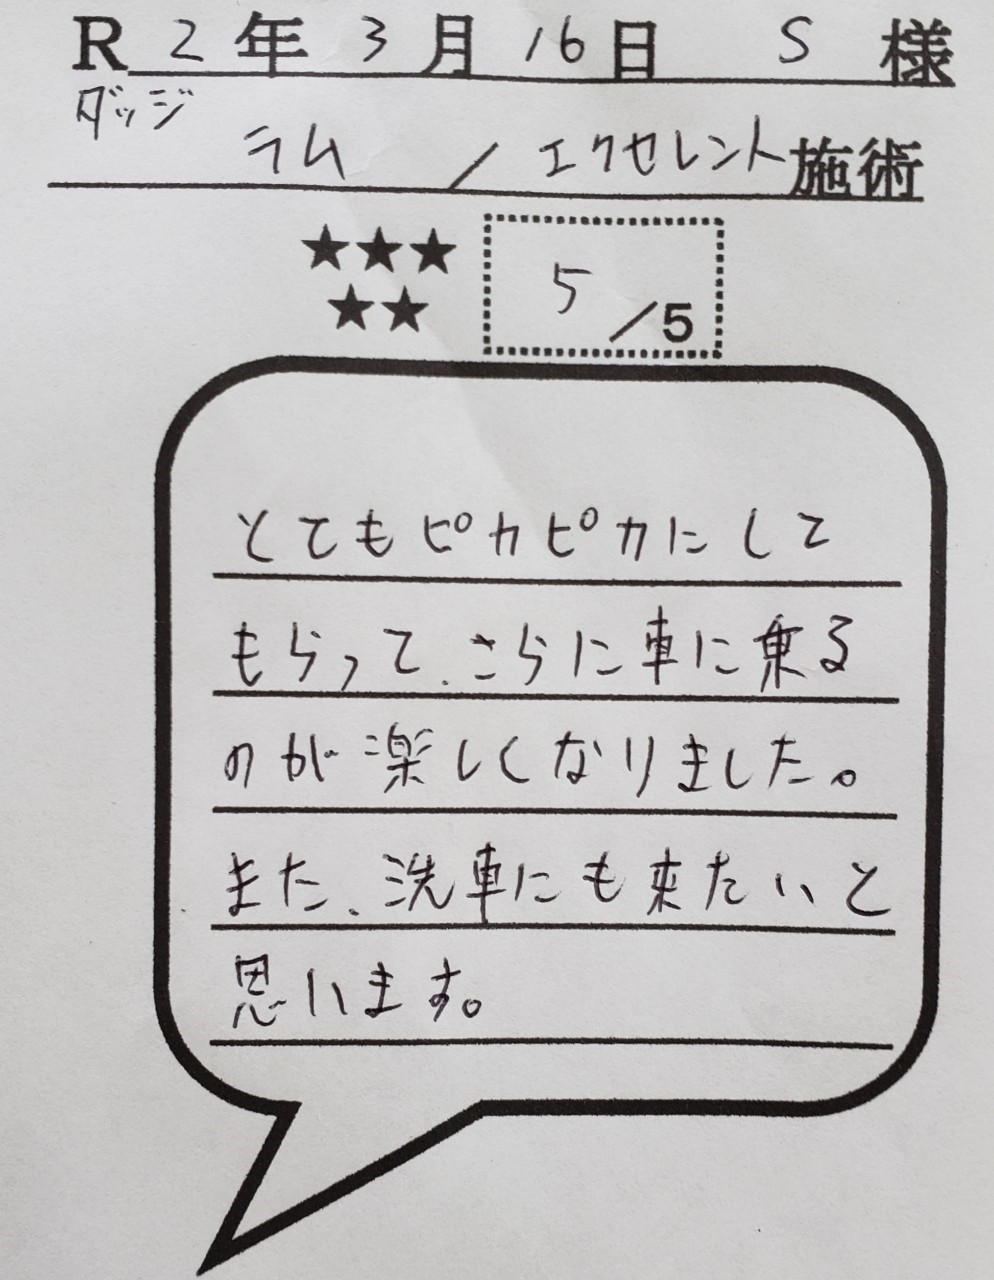 R 2年 3月 16日 S 様
ダッジ
ラム / エクセレント施術
★★★
★★
5/5
とてもピカピカにして
もらって、さらに車に乗る
のが楽しくなりました。
また、洗車にも来たいと
思います。